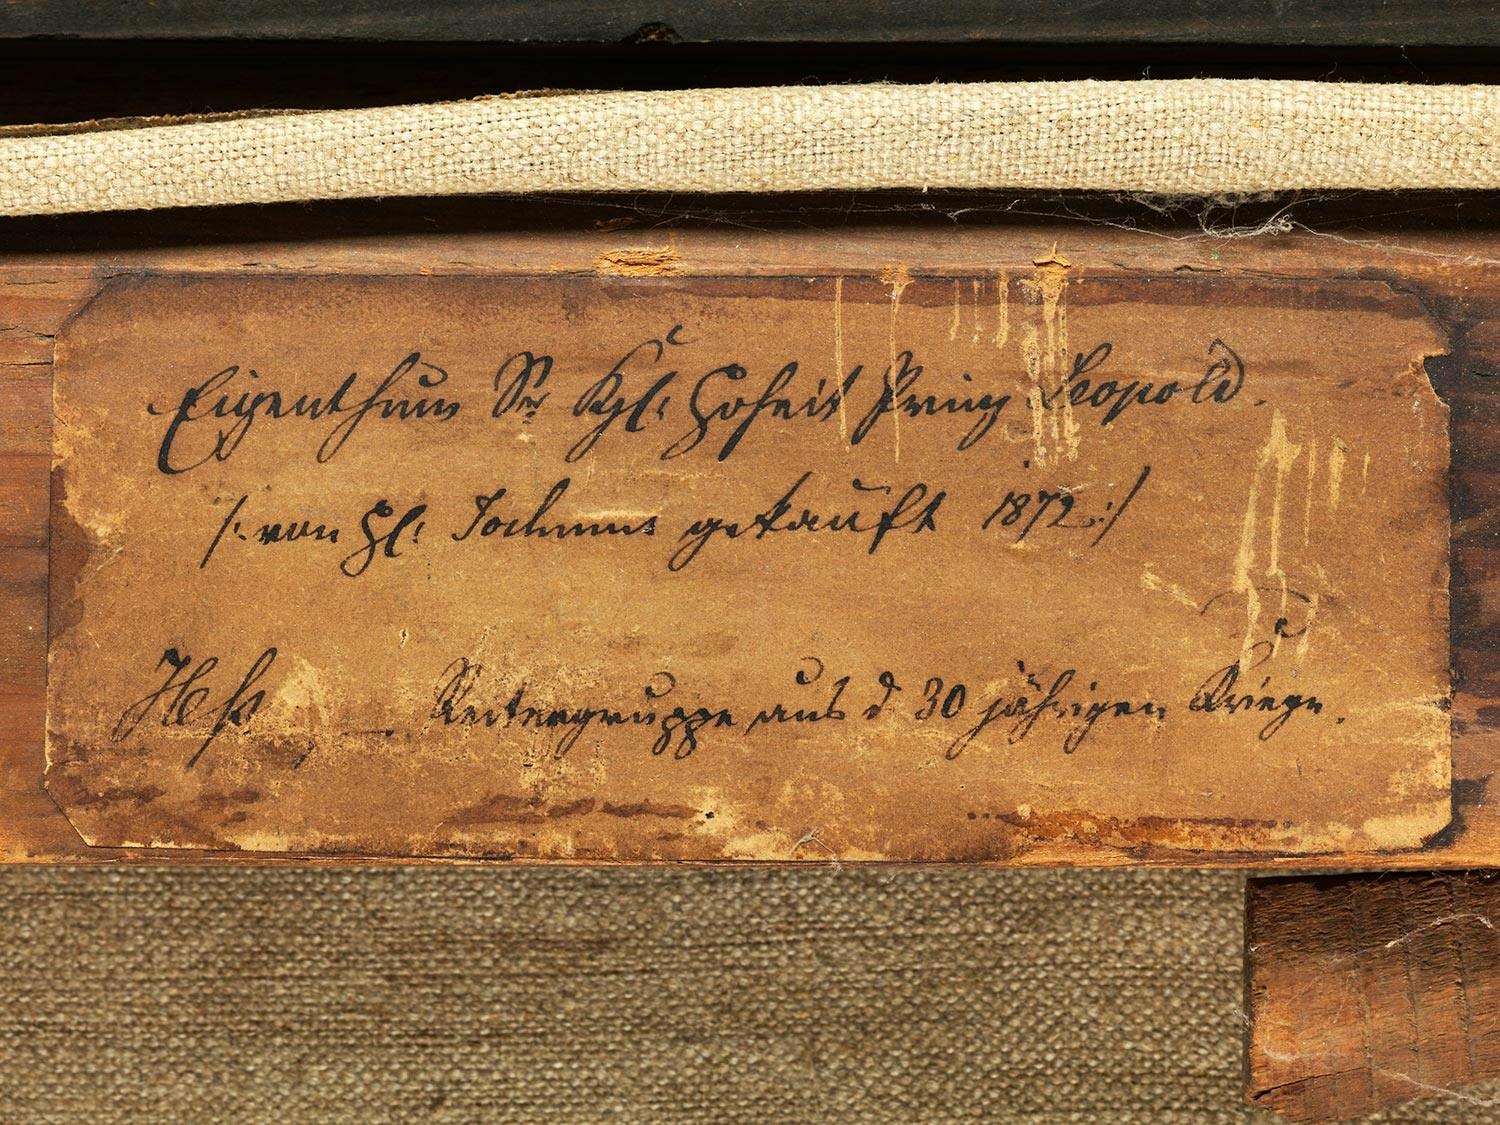 Eigenthum Sr Kgl: Hoheit Prinz Leopold.
/: von Hl: gekauft 1872 :/
Heß Reitergruppe aus d 30 jährigen Kriege.